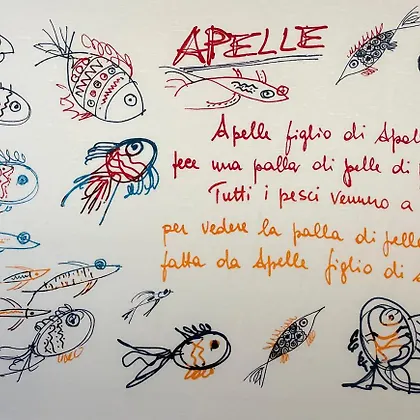 APELLE
Apelle figlio di Apol
fece una palla di pelle di p
Tutti i pesci vennero a
per vedere la palla di pelle
fatta da Apelle figlio di